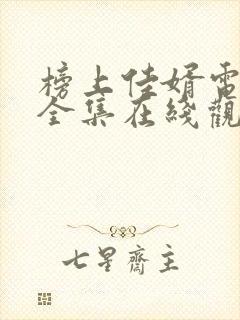 榜上佳婿電
全集在綫觀
七星齋主